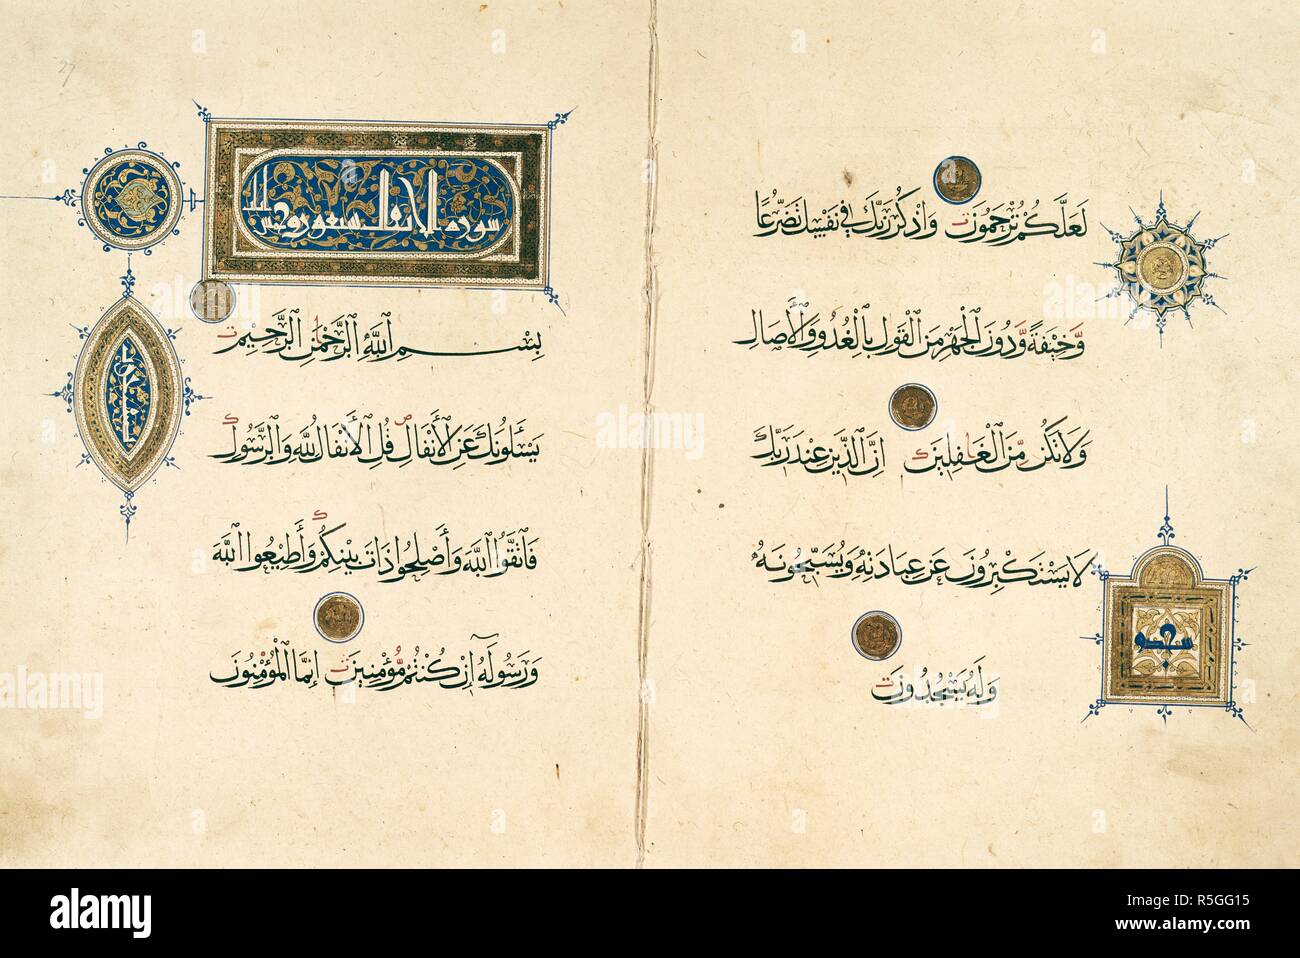 لَعَلَّكُمْ تُرْحَمُونَ وَاذْكُرْ رَبَّكَ فِي نَفْسِكَ تَضَرُّعًا
وَّخِيفَةً وَّدُونَ الْجَهْرِ مِنَ الْقَوْلِ بِالْغُدُوِّ وَالْآصَالِ
وَلَا تَكُنْ مِّنَ الْغَافِلِينَ إِنَّ الَّذِينَ عِنْدَ رَبِّكَ
لَا يَسْتَكْبِرُونَ عَنْ عِبَادَتِهِ وَيُسَبِّحُونَهُ
سجدة
وَلَهُ يَسْجُدُونَ
27
سورة الانفال سبعون و
بِسْمِ اللَّهِ الرَّحْمَٰنِ الرَّحِيمِ
يَسْأَلُونَكَ عَنِ الْأَنْفَالِ قُلِ الْأَنْفَالُ لِلَّهِ وَالرَّسُولِ
فَاتَّقُوا اللَّهَ وَأَصْلِحُوا ذَاتَ بَيْنِكُمْ وَأَطِيعُوا اللَّهَ
وَرَسُولَهُ إِنْ كُنْتُمْ مُّؤْمِنِينَ إِنَّمَا الْمُؤْمِنُونَ
alamy
alamy stock photo
R5GG15
www.alamy.com